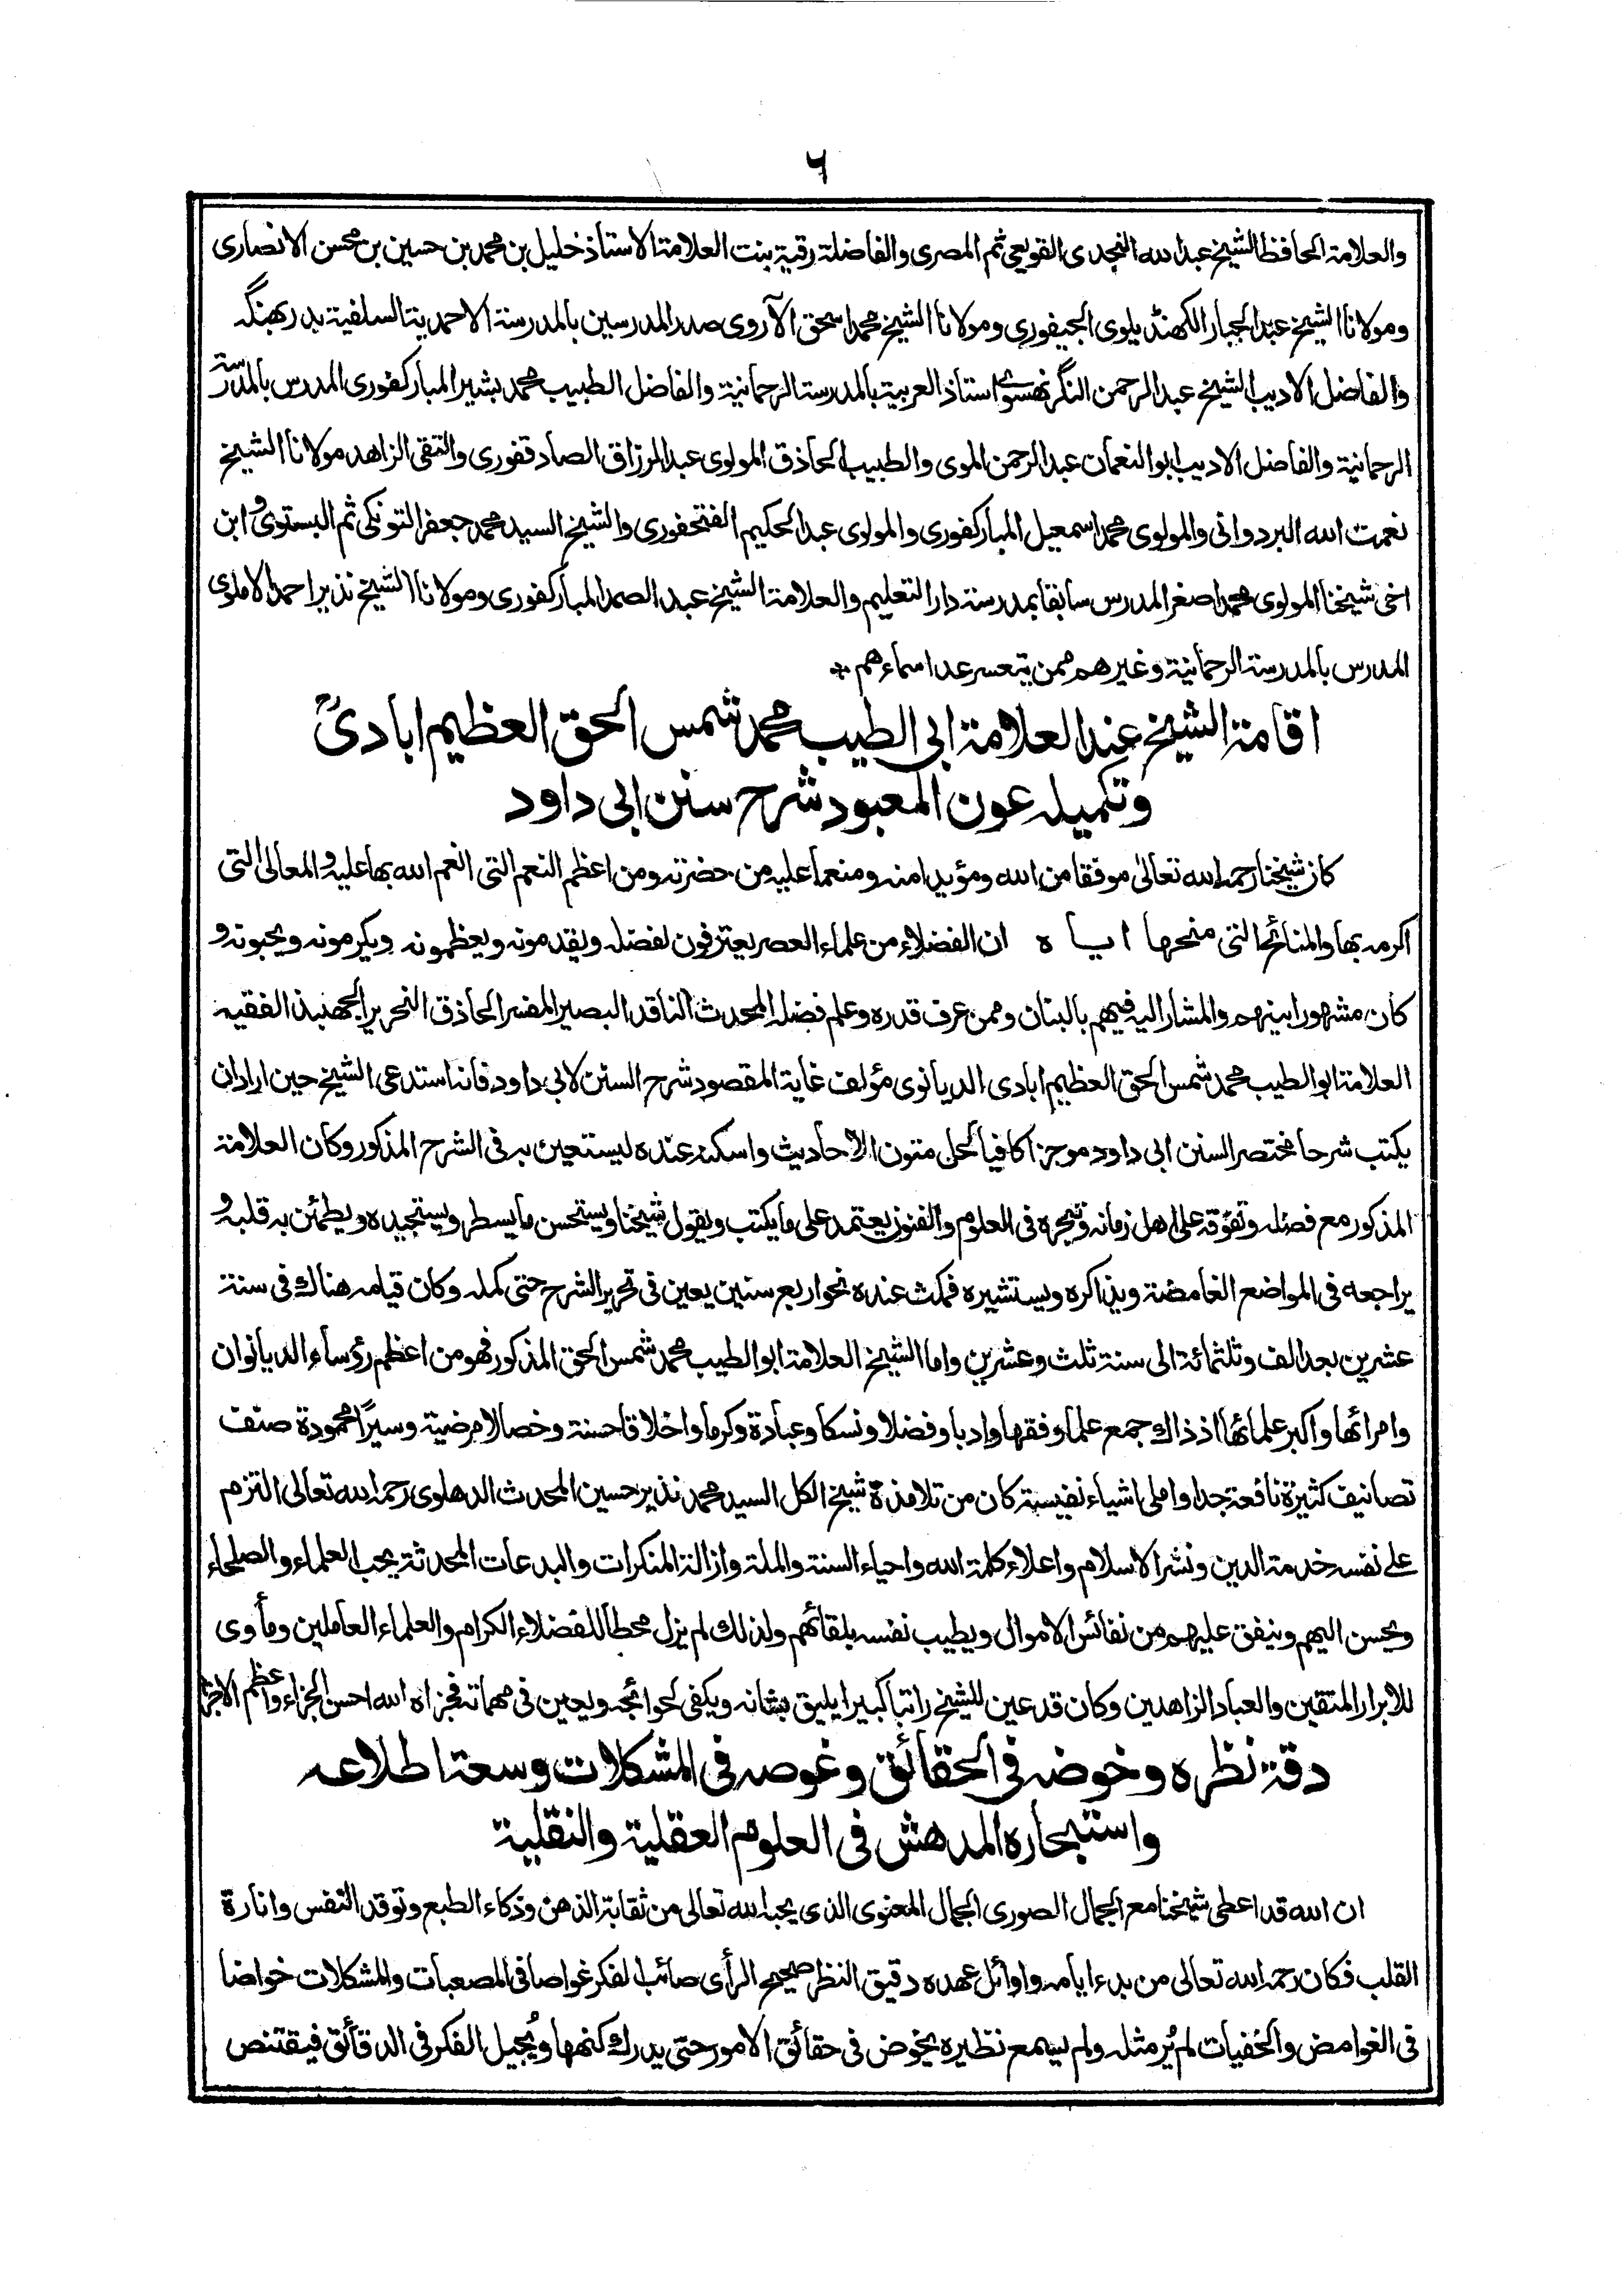 ٦
والعلامة الحافظ الشيخ عبد الله النجدى القويعى ثم المصرى والفاضلة رقية بنت العلامة الاستاذ خليل بن محمد بن حسين بن محسن الانصارى
ومولانا الشيخ عبد الجبار الكهنڈيلوى الجيفورى ومولانا الشيخ محمد اسحق الآروى صدر المدرسين بالمدرسة الاحمدية السلفية بدربهنگه
والفاضل الاديب الشيخ عبد الرحمن النگرنهسوى استاذ العربية بالمدرسة الرحمانية والفاضل الطبيب محمد بشير المباركفورى المدرس بالمدرسة
الرحمانية والفاضل الاديب ابو النعمان عبد الرحمن الموى والطبيب الحاذق المولوى عبد الرزاق الصادقفورى والتقى الزاهد مولانا الشيخ
نعمت الله البردوانى والمولوى محمد اسمعيل المباركفورى والمولوى عبد الحكيم الفتحفورى والشيخ السيد محمد جعفر التونكى ثم البستوى و ابن
اخى شيخنا المولوى محمد اصغر المدرس سابقا بمدرسة دار التعليم والعلامة الشيخ عبد الصمد المباركفورى ومولانا الشيخ نذير احمد الاملوى
المدرس بالمدرسة الرحمانية وغيرهم ممن يتعسر عد اسماءهم *
اقامة الشيخ عند العلامة ابى الطيب محمد شمس الحق العظيم ابادىؒ
وتكميله عون المعبود شرح سنن ابى داود
كان شيخنا رحمه الله تعالىٰ موفقا من الله ومؤيدا منه ومنعما عليه من حضرته ومن اعظم النعم التى انعم الله بها عليه و المعالى التى
اكرمه بها والمنائح التى منحها اياه ان الفضلاء من علماء العصر يعترفون لفضله ويقدمونه ويعظمونه ويكرمونه ويحبونه و
كان مشهورا بينهم والمشار اليه فيهم بالبنان وممن عرف قدره وعلم فضله المحدث الناقد البصير المفسر الحاذق النحرير الجهبذ الفقيه
العلامة ابو الطيب محمد شمس الحق العظيم ابادى الديانوى مؤلف غاية المقصود شرح السنن لابى داود فانه استدعى الشيخ حين اراد ان
يكتب شرحا مختصرا لسنن ابى داود موجزا كافيا لحل متون الاحاديث واسكنه عنده ليستعين به فى الشرح المذكور وكان العلامة
المذكور مع فضله وتفوقه على اهل زمانه وتبحره فى العلوم والفنون يعتمد على ما يكتب ويقول شيخنا ويستحسن ما يسطر ويستجيده ويطمئن به قلبه و
يراجعه فى المواضع الغامضة ويذاكره ويستشيره فمكث عنده نحوا ربع سنين يعين فى تحرير الشرح حتى كمله وكان قيامه هناك فى سنة
عشرين بعد الف وثلثمائة الى سنة ثلث وعشرين واما الشيخ العلامة ابو الطيب محمد شمس الحق المذكور فهو من اعظم رؤساء الديانوان
وامرائها واكبر علمائها اذ ذاك جمع علما وفقها وادبا وفضلا ونسكا وعبادة وكرما واخلاقا حسنة وخصالا مرضية وسيرًا محمودة صنف
تصانيف كثيرة نافعة جدا واملى اشياء نفيسة كان من تلامذة شيخ الكل السيد محمد نذير حسين المحدث الدهلوى رحمه الله تعالى التزم
على نفسه خدمة الدين ونشر الاسلام واعلاء كلمة الله واحياء السنة والملة وازالة المنكرات والبدعات المحدثة يحب العلماء والصلحاء
ويحسن اليهم وينفق عليهم من نفائس الاموال ويطيب نفسه بلقائهم ولذلك لم يزل محطا للفضلاء الكرام والعلماء العاملين ومأوى
للابرار المتقين والعباد الزاهدين وكان قد عين للشيخ راتبا كبيرا يليق بشانه ويكفى لحوائجه ويعين فى مهماته فجزاه الله احسن الجزاء واعظم الاجر
دقة نظره وخوضه فى الحقائق وغوصه فى المشكلات وسعة اطلاعه
واستبحاره المدهش فى العلوم العقلية والنقلية
ان الله قد اعطى شيخنا مع الجمال الصورى الجمال المعنوى الذى يحبه الله تعالى من ثقابة الذهن وذكاء الطبع وتوقد النفس وانارة
القلب فكان رحمه الله تعالى من بدء ايامه واوائل عهده دقيق النظر صحيح الرأى صائب الفكر غواصا فى المصعبات والمشكلات خواضا
فى الغوامض والخفيات لم يُر مثله ولم يسمع نظيره يخوض فى حقائق الامور حتى يدرك كنهها ويُجيل الفكر فى الدقائق فيقتنص